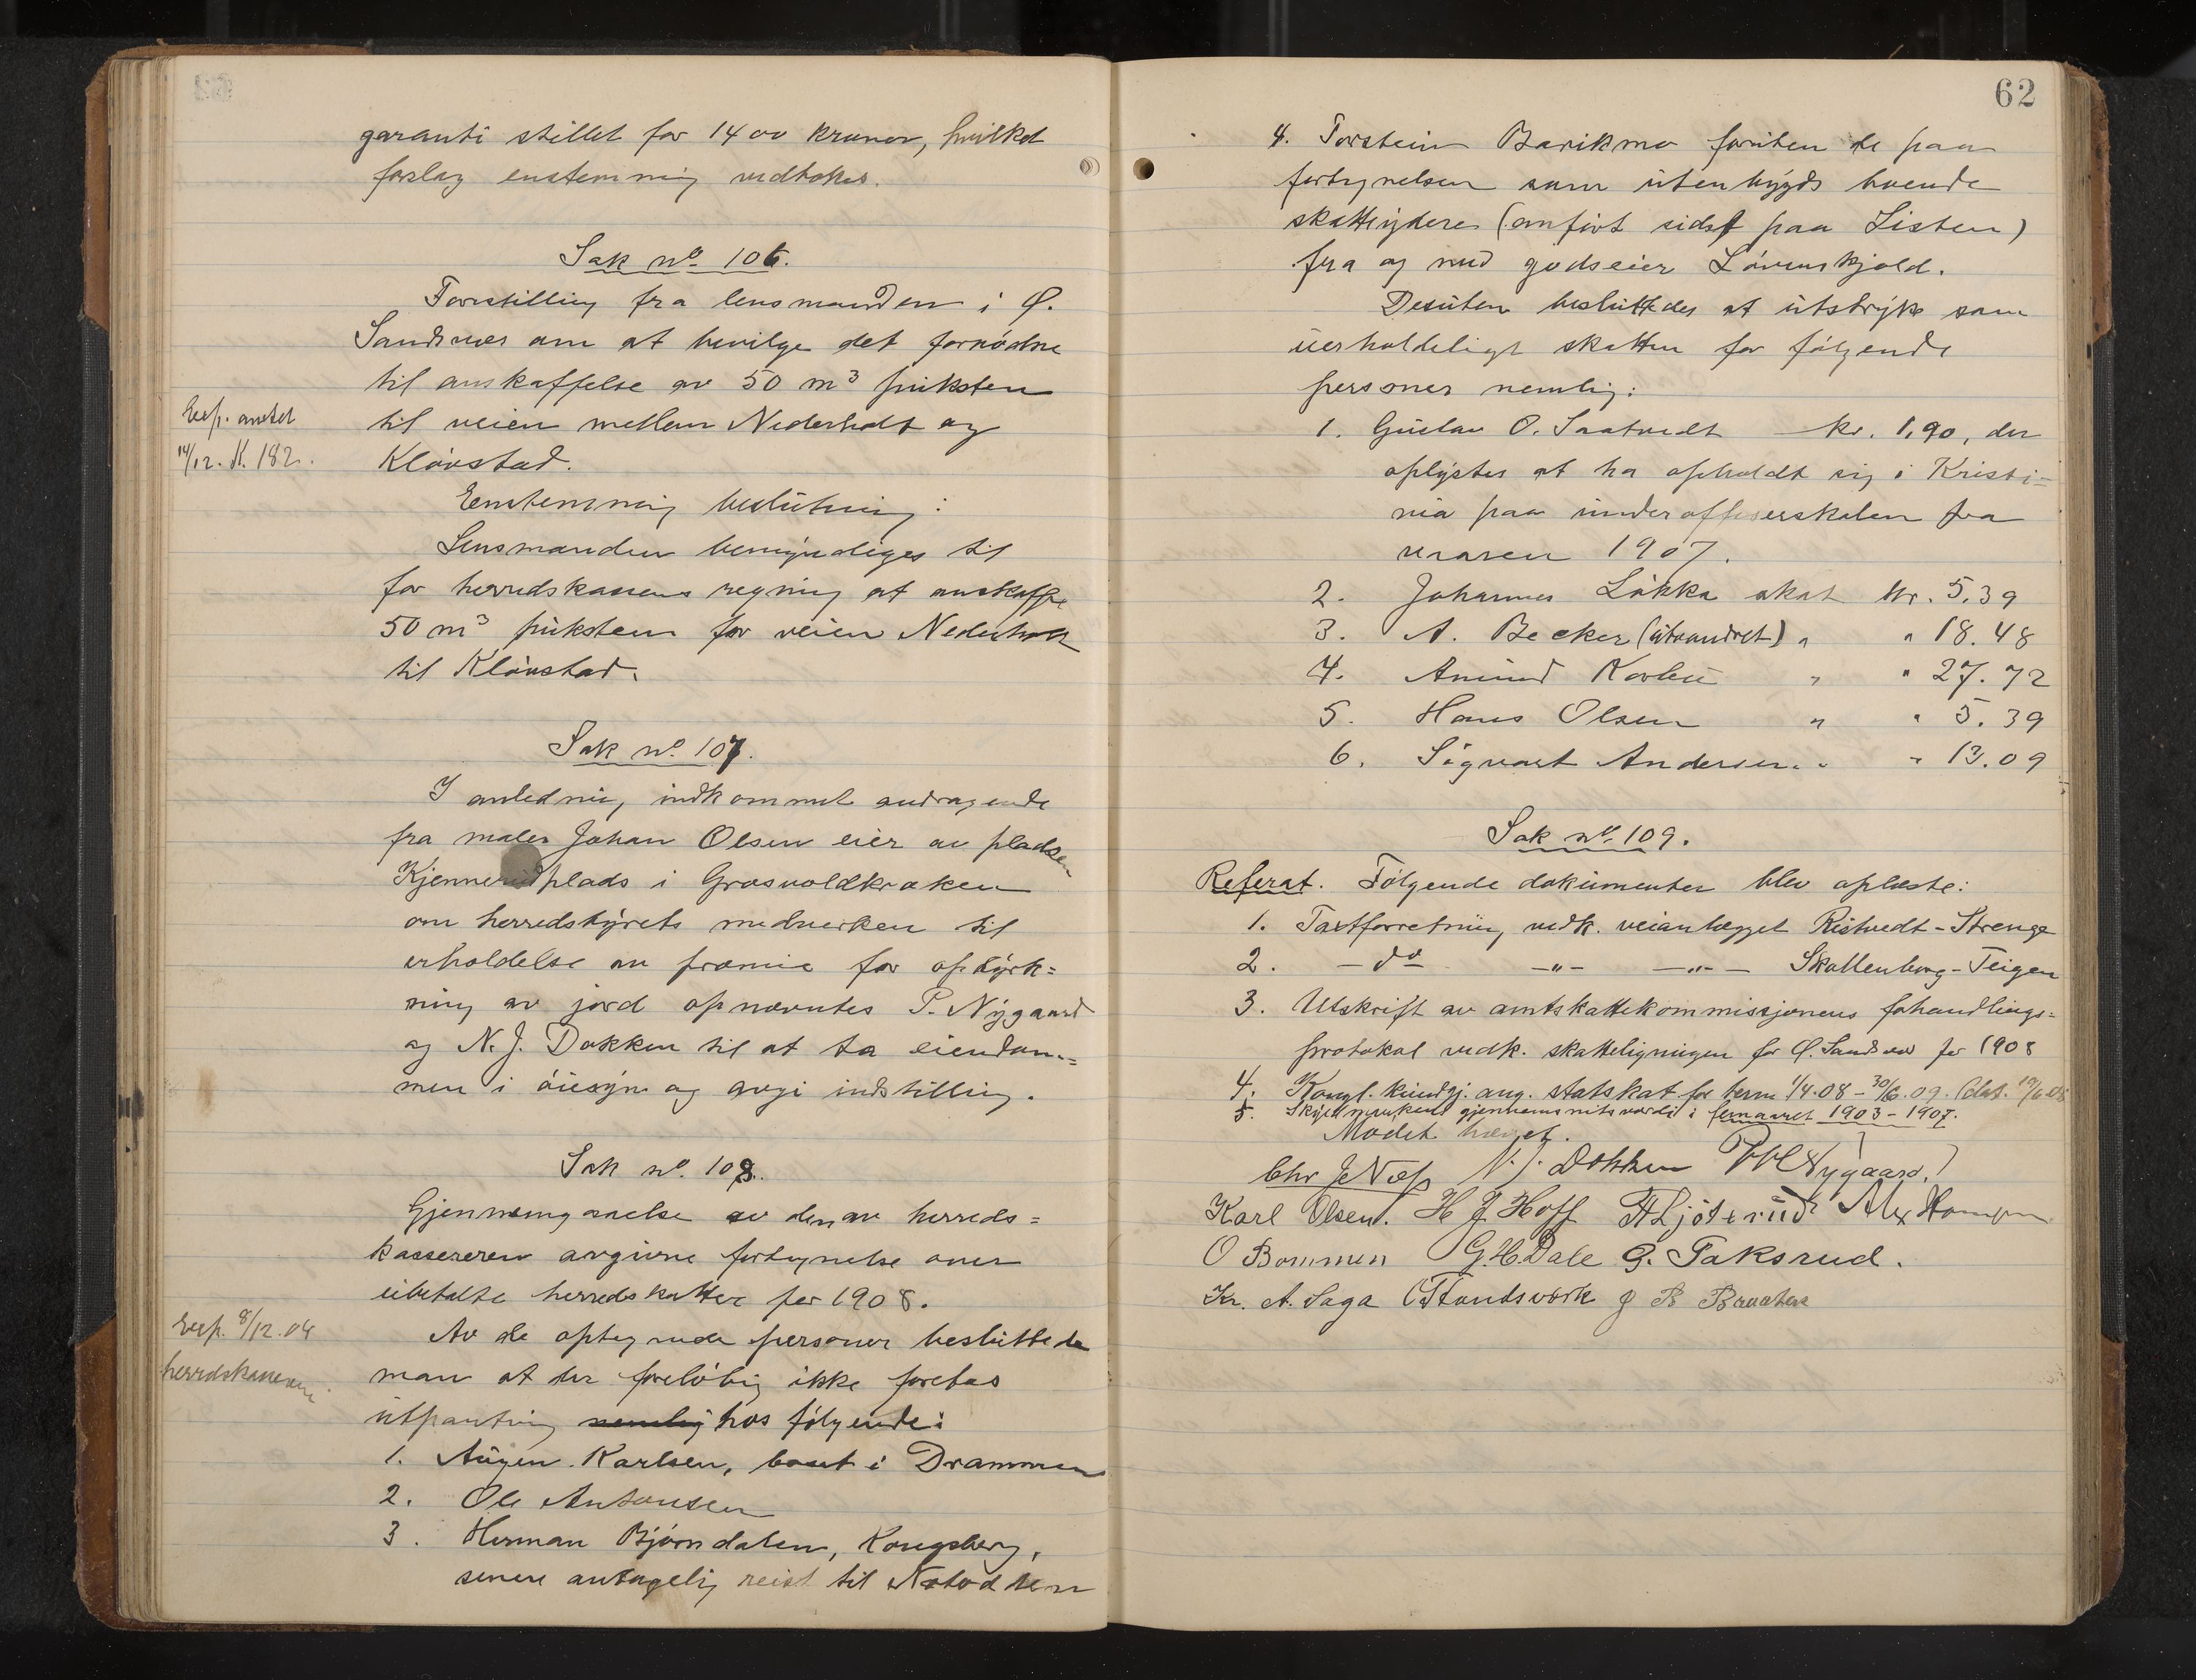 garanti stillet for 1400 kroner, hvilket
forslag enstemmig vedtokes.
Sak no. 106.
Forestilling fra lensmanden i Ø.
Sandsvær om at bevilge det fornødne
til anskaffelse av 50 m3 puksten
til veien mellem Nederholt og
Kløvstad.
Exp. amtet
14/12. K. 182.
Eenstemmig beslutning:
Lensmanden bemyndiges til
for herredskassens regning at anskaffe
50 m3 puksten for veien Nederholt
til Kløvstad.
Sak no. 107.
I anledning indkommet andragende
fra maler Johan Olsen eier av pladsen
Kjennerudplads i Grosvoldkroken
om herredstyrets medvirken til
erholdelse av præmie for opdyrk=
ning av jord opnævntes P. Nygaard
og N. J. Dokken til at ta eiendom=
men i øiesyn og avgi indstilling.
Sak no. 108.
Gjennemgaaelse av den av herreds=
kassereren avgivne fortegnelse over
ubetalte herredsskatter for 1908.
Exp. 8/12.08
herredskassereren
Av de optegnede personer besluttede
man at der foreløbig ikke foretas
utpanting nemlig hos følgende:
1. Augen Karlsen, bosat i Drammen
2. Ole Antonsen
3. Herman Bjørndalen, Kongsberg,
senere antagelig reist til Notodden
62
4. Torstein Barikmo foruten de paa
fortegnelsen som utenbygds boende
skatteydere (anført sidst paa Listen)
fra og med godseier Løvenskjold.
Desuten besluttedes at utstryke som
uerholdeligt skatten for følgende
personer nemlig:
1. Gustav O. Saatvedt kr. 1,90, der
oplystes at ha opholdt sig i Kristi=
nia paa underofficerskolen fra
vaaren 1907.
2. Johannes Løkka skat kr. 5.39
3. A. Becker (utvandret) " " 18.48
4. Amund Korbu " " 27.72
5. Hans Olsen " " 5.39
6. Sigvart Andersen " " 13.09
Sak no. 109.
Referat. Følgende dokumenter blev oplæste:
1. Taxtforretning vedk. veianlægget Ristvedt-Strenge
2. - do -"- -"- Skollenborg-Teigen
3. Utskrift av amtskattekommissjonens fohandlings=
protokol vedk. skatteligningen for Ø. Sandsvær for 1908
4. Kongl. kundgj. ang. statskat for term 1/4.08 - 30/6.09. (dat. 19/6.08
5. Skyldmarkens gjennemsnitsværdi i femaaret 1903-1907.
Mødet hævet.
Chr J Næss N. J. Dokken P Nygaard.
Karl Olsen. H J Hoff H Ljøterud Alex Hansen
O Bommen G. H Dale G. Taksrud.
Kr. A. Saga C Strandsværk J B Braaten